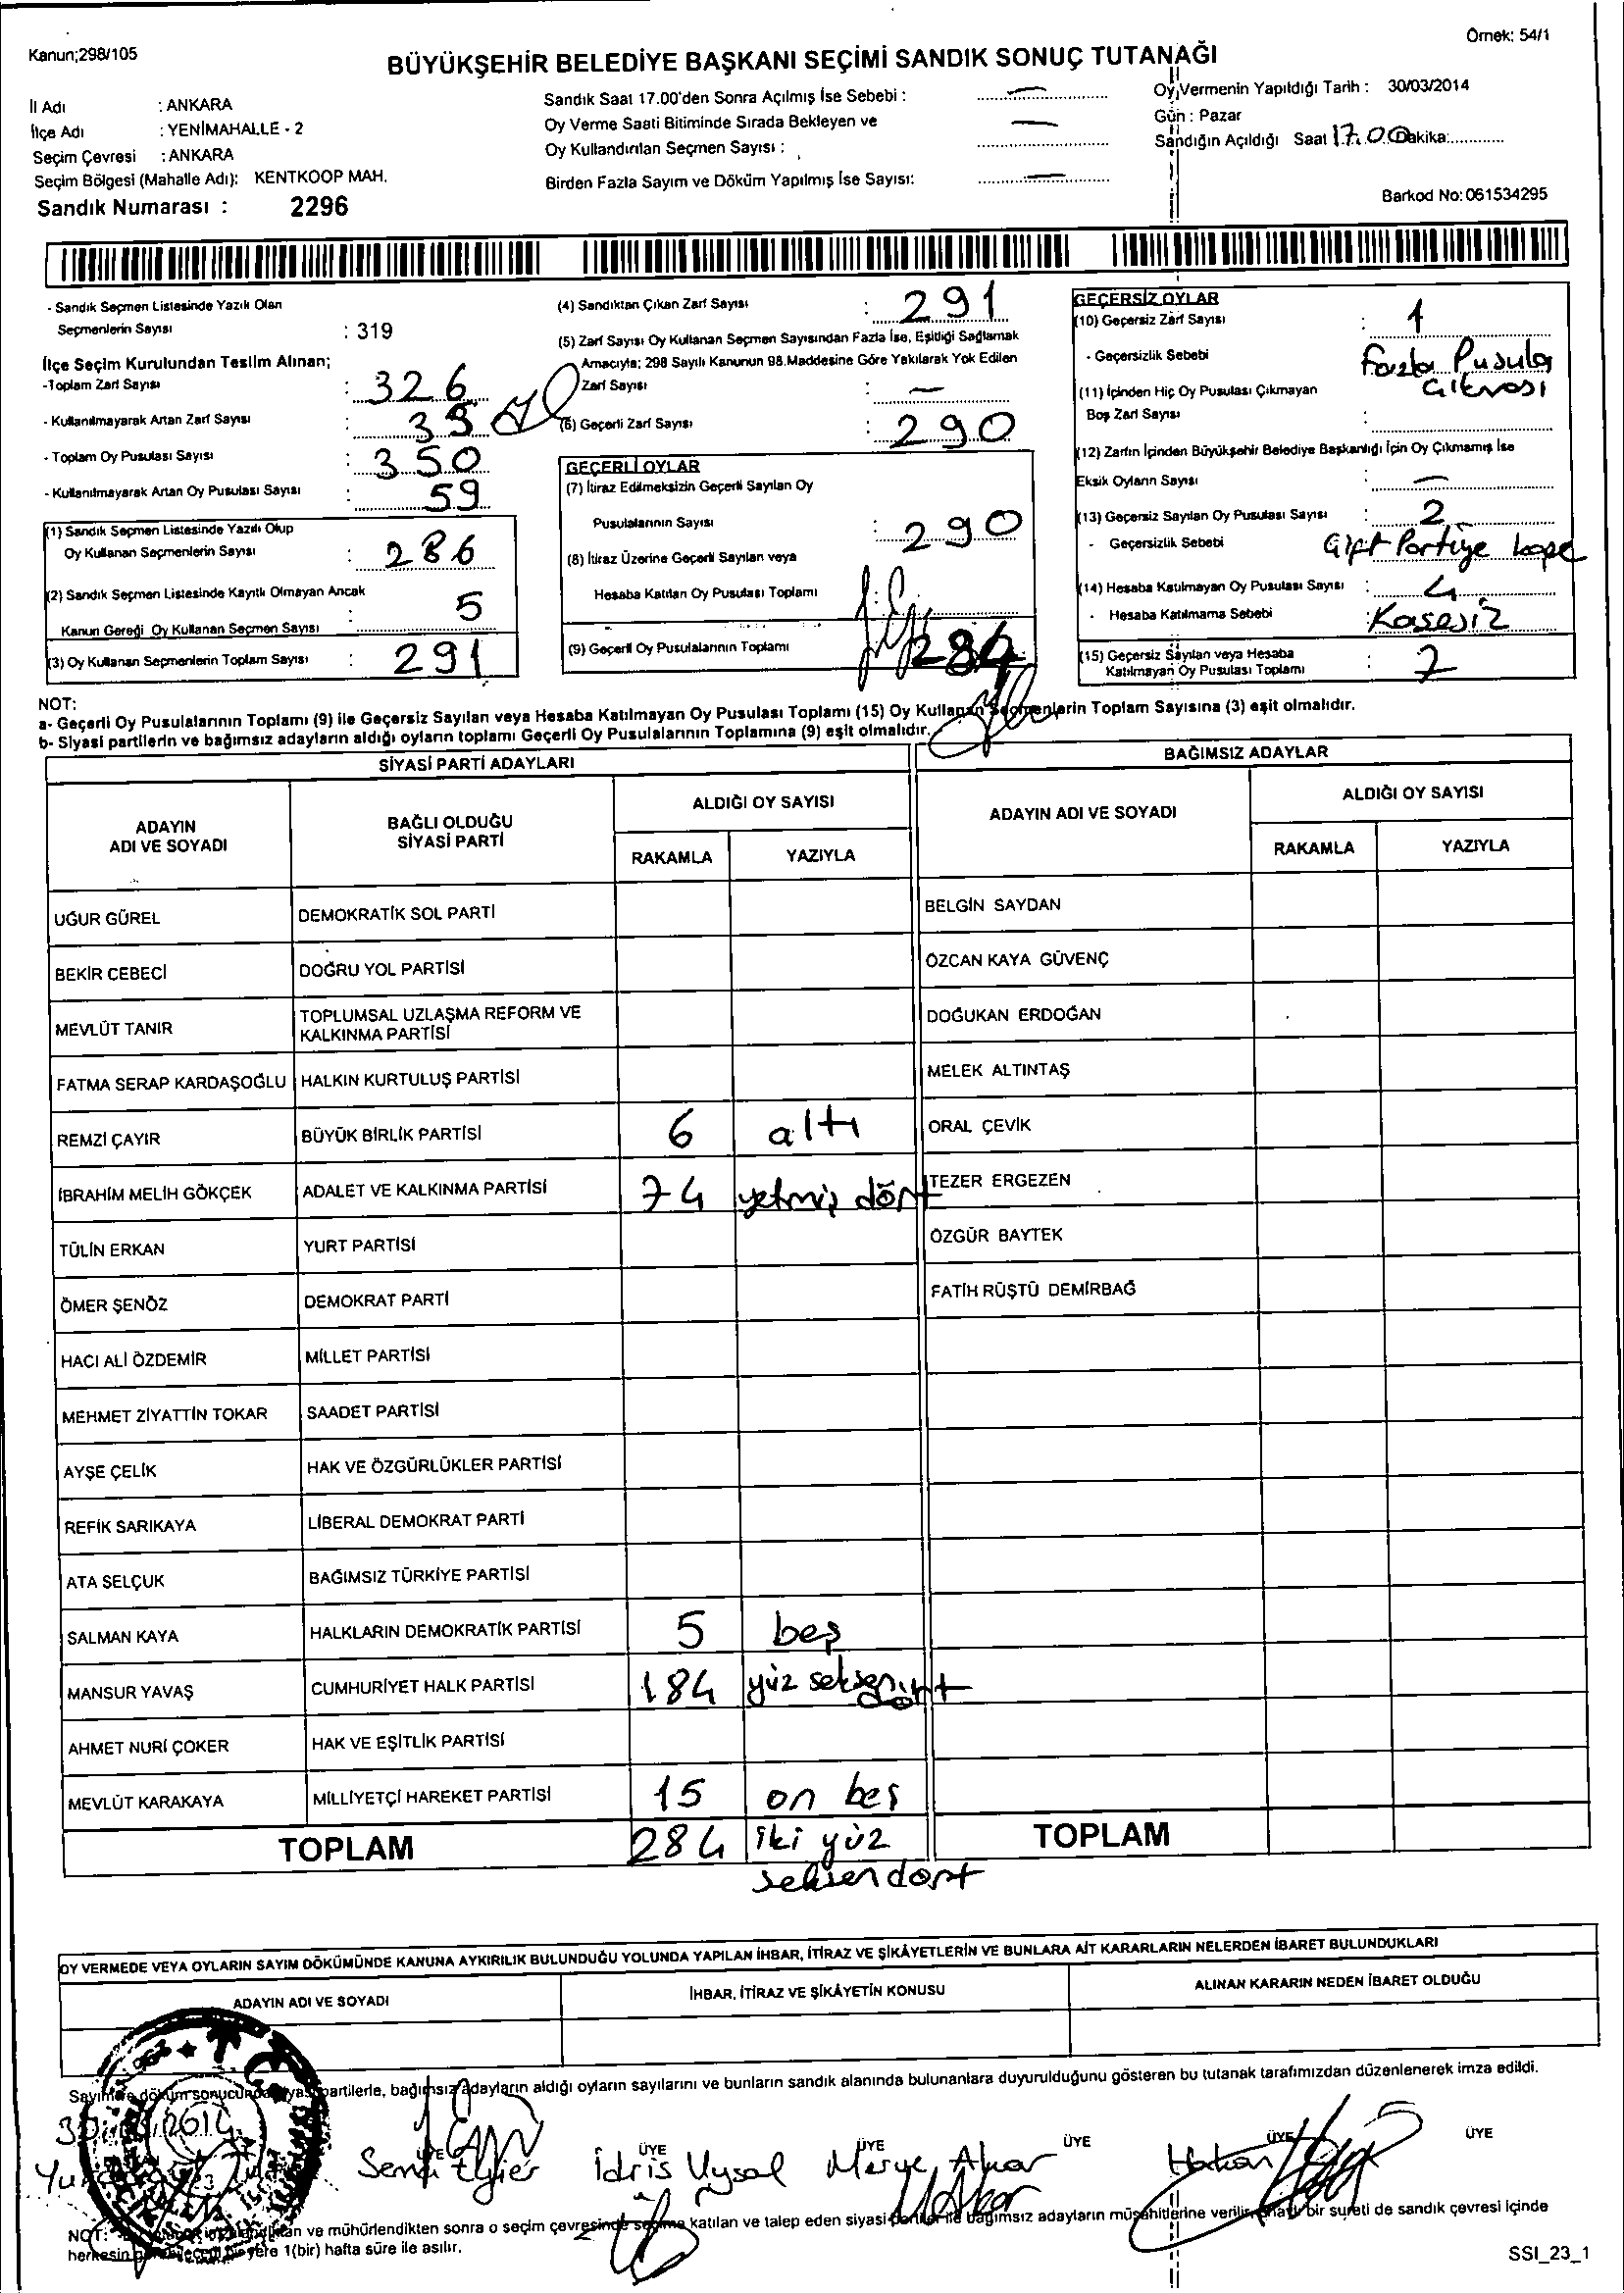 Kanun;298/105
Örnek: 54/1
BÜYÜKŞEHİR BELEDİYE BAŞKANI SEÇİMİ SANDIK SONUÇ TUTANAĞI
İl Adı : ANKARA
İlçe Adı : YENİMAHALLE - 2
Seçim Çevresi : ANKARA
Seçim Bölgesi (Mahalle Adı): KENTKOOP MAH.
Sandık Numarası : 2296
Sandık Saat 17.00'den Sonra Açılmış İse Sebebi : —
Oy Verme Saati Bitiminde Sırada Bekleyen ve
Oy Kullandırılan Seçmen Sayısı : —
Birden Fazla Sayım ve Döküm Yapılmış İse Sayısı: —
Oy Vermenin Yapıldığı Tarih : 30/03/2014
Gün : Pazar
Sandığın Açıldığı Saat 17.00 Dakika:
Barkod No: 061534295
- Sandık Seçmen Listesinde Yazılı Olan
Seçmenlerin Sayısı : 319
İlçe Seçim Kurulundan Teslim Alınan;
-Toplam Zarf Sayısı : 326
- Kullanılmayarak Artan Zarf Sayısı : 35
- Toplam Oy Pusulası Sayısı : 350
- Kullanılmayarak Artan Oy Pusulası Sayısı : 59
(1) Sandık Seçmen Listesinde Yazılı Olup
Oy Kullanan Seçmenlerin Sayısı : 286
(2) Sandık Seçmen Listesinde Kayıtlı Olmayan Ancak
Kanun Gereği Oy Kullanan Seçmen Sayısı : 5
(3) Oy Kullanan Seçmenlerin Toplam Sayısı : 291
(4) Sandıktan Çıkan Zarf Sayısı : 291
(5) Zarf Sayısı Oy Kullanan Seçmen Sayısından Fazla İse, Eşitliği Sağlamak
Amacıyla; 298 Sayılı Kanunun 98.Maddesine Göre Yakılarak Yok Edilen
Zarf Sayısı : —
(6) Geçerli Zarf Sayısı : 290
GEÇERLİ OYLAR
(7) İtiraz Edilmeksizin Geçerli Sayılan Oy
Pusulalarının Sayısı : 290
(8) İtiraz Üzerine Geçerli Sayılan veya
Hesaba Katılan Oy Pusulası Toplamı
(9) Geçerli Oy Pusulalarının Toplamı 284
GEÇERSİZ OYLAR
(10) Geçersiz Zarf Sayısı : 1
- Geçersizlik Sebebi Fazla Pusula
çıkması
(11) İçinden Hiç Oy Pusulası Çıkmayan
Boş Zarf Sayısı :
(12) Zarfın İçinden Büyükşehir Belediye Başkanlığı İçin Oy Çıkmamış İse
Eksik Oyların Sayısı : —
(13) Geçersiz Sayılan Oy Pusulası Sayısı : 2
- Geçersizlik Sebebi Çift Partiye kaşe
(14) Hesaba Katılmayan Oy Pusulası Sayısı : 4
- Hesaba Katılmama Sebebi : Kaşesiz
(15) Geçersiz Sayılan veya Hesaba
Katılmayan Oy Pusulası Toplamı : 7
NOT:
a- Geçerli Oy Pusulalarının Toplamı (9) ile Geçersiz Sayılan veya Hesaba Katılmayan Oy Pusulası Toplamı (15) Oy Kullanan Seçmenlerin Toplam Sayısına (3) eşit olmalıdır.
b- Siyasi partilerin ve bağımsız adayların aldığı oyların toplamı Geçerli Oy Pusulalarının Toplamına (9) eşit olmalıdır.
SİYASİ PARTİ ADAYLARI
BAĞIMSIZ ADAYLAR
ADAYIN ADI VE SOYADI
BAĞLI OLDUĞU SİYASİ PARTİ
ALDIĞI OY SAYISI
RAKAMLA YAZIYLA
ADAYIN ADI VE SOYADI
ALDIĞI OY SAYISI
RAKAMLA YAZIYLA
UĞUR GÜREL DEMOKRATİK SOL PARTİ BELGİN SAYDAN
BEKİR CEBECİ DOĞRU YOL PARTİSİ ÖZCAN KAYA GÜVENÇ
MEVLÜT TANIR TOPLUMSAL UZLAŞMA REFORM VE KALKINMA PARTİSİ DOĞUKAN ERDOĞAN
FATMA SERAP KARDAŞOĞLU HALKIN KURTULUŞ PARTİSİ MELEK ALTINTAŞ
REMZİ ÇAYIR BÜYÜK BİRLİK PARTİSİ 6 altı ORAL ÇEVİK
İBRAHİM MELİH GÖKÇEK ADALET VE KALKINMA PARTİSİ 74 yetmiş dört TEZER ERGEZEN
TÜLİN ERKAN YURT PARTİSİ ÖZGÜR BAYTEK
ÖMER ŞENÖZ DEMOKRAT PARTİ FATİH RÜŞTÜ DEMİRBAĞ
HACI ALİ ÖZDEMİR MİLLET PARTİSİ
MEHMET ZİYATTİN TOKAR SAADET PARTİSİ
AYŞE ÇELİK HAK VE ÖZGÜRLÜKLER PARTİSİ
REFİK SARIKAYA LİBERAL DEMOKRAT PARTİ
ATA SELÇUK BAĞIMSIZ TÜRKİYE PARTİSİ
SALMAN KAYA HALKLARIN DEMOKRATİK PARTİSİ 5 beş
MANSUR YAVAŞ CUMHURİYET HALK PARTİSİ 184 yüz seksen dört
AHMET NURİ ÇOKER HAK VE EŞİTLİK PARTİSİ
MEVLÜT KARAKAYA MİLLİYETÇİ HAREKET PARTİSİ 15 on beş
TOPLAM 284 iki yüz TOPLAM
seksendört
OY VERMEDE VEYA OYLARIN SAYIM DÖKÜMÜNDE KANUNA AYKIRILIK BULUNDUĞU YOLUNDA YAPILAN İHBAR, İTİRAZ VE ŞİKÂYETLERİN VE BUNLARA AİT KARARLARIN NELERDEN İBARET BULUNDUKLARI
ADAYIN ADI VE SOYADI İHBAR, İTİRAZ VE ŞİKÂYETİN KONUSU ALINAN KARARIN NEDEN İBARET OLDUĞU
Sayım ve döküm sonucunda siyasi partilerle, bağımsız adayların aldığı oyların sayılarını ve bunların sandık alanında bulunanlara duyurulduğunu gösteren bu tutanak tarafımızdan düzenlenerek imza edildi.
2014
ÜYE ÜYE ÜYE ÜYE ÜYE ÜYE
İdris Uysal Merve Akar Hakan
NOT: ve mühürlendikten sonra o seçim çevresinde seçime katılan ve talep eden siyasi partiler ile bağımsız adayların müşahitlerine verilir, bir sureti de sandık çevresi içinde
herkesin yere 1(bir) hafta süre ile asılır.
SSI_23_1